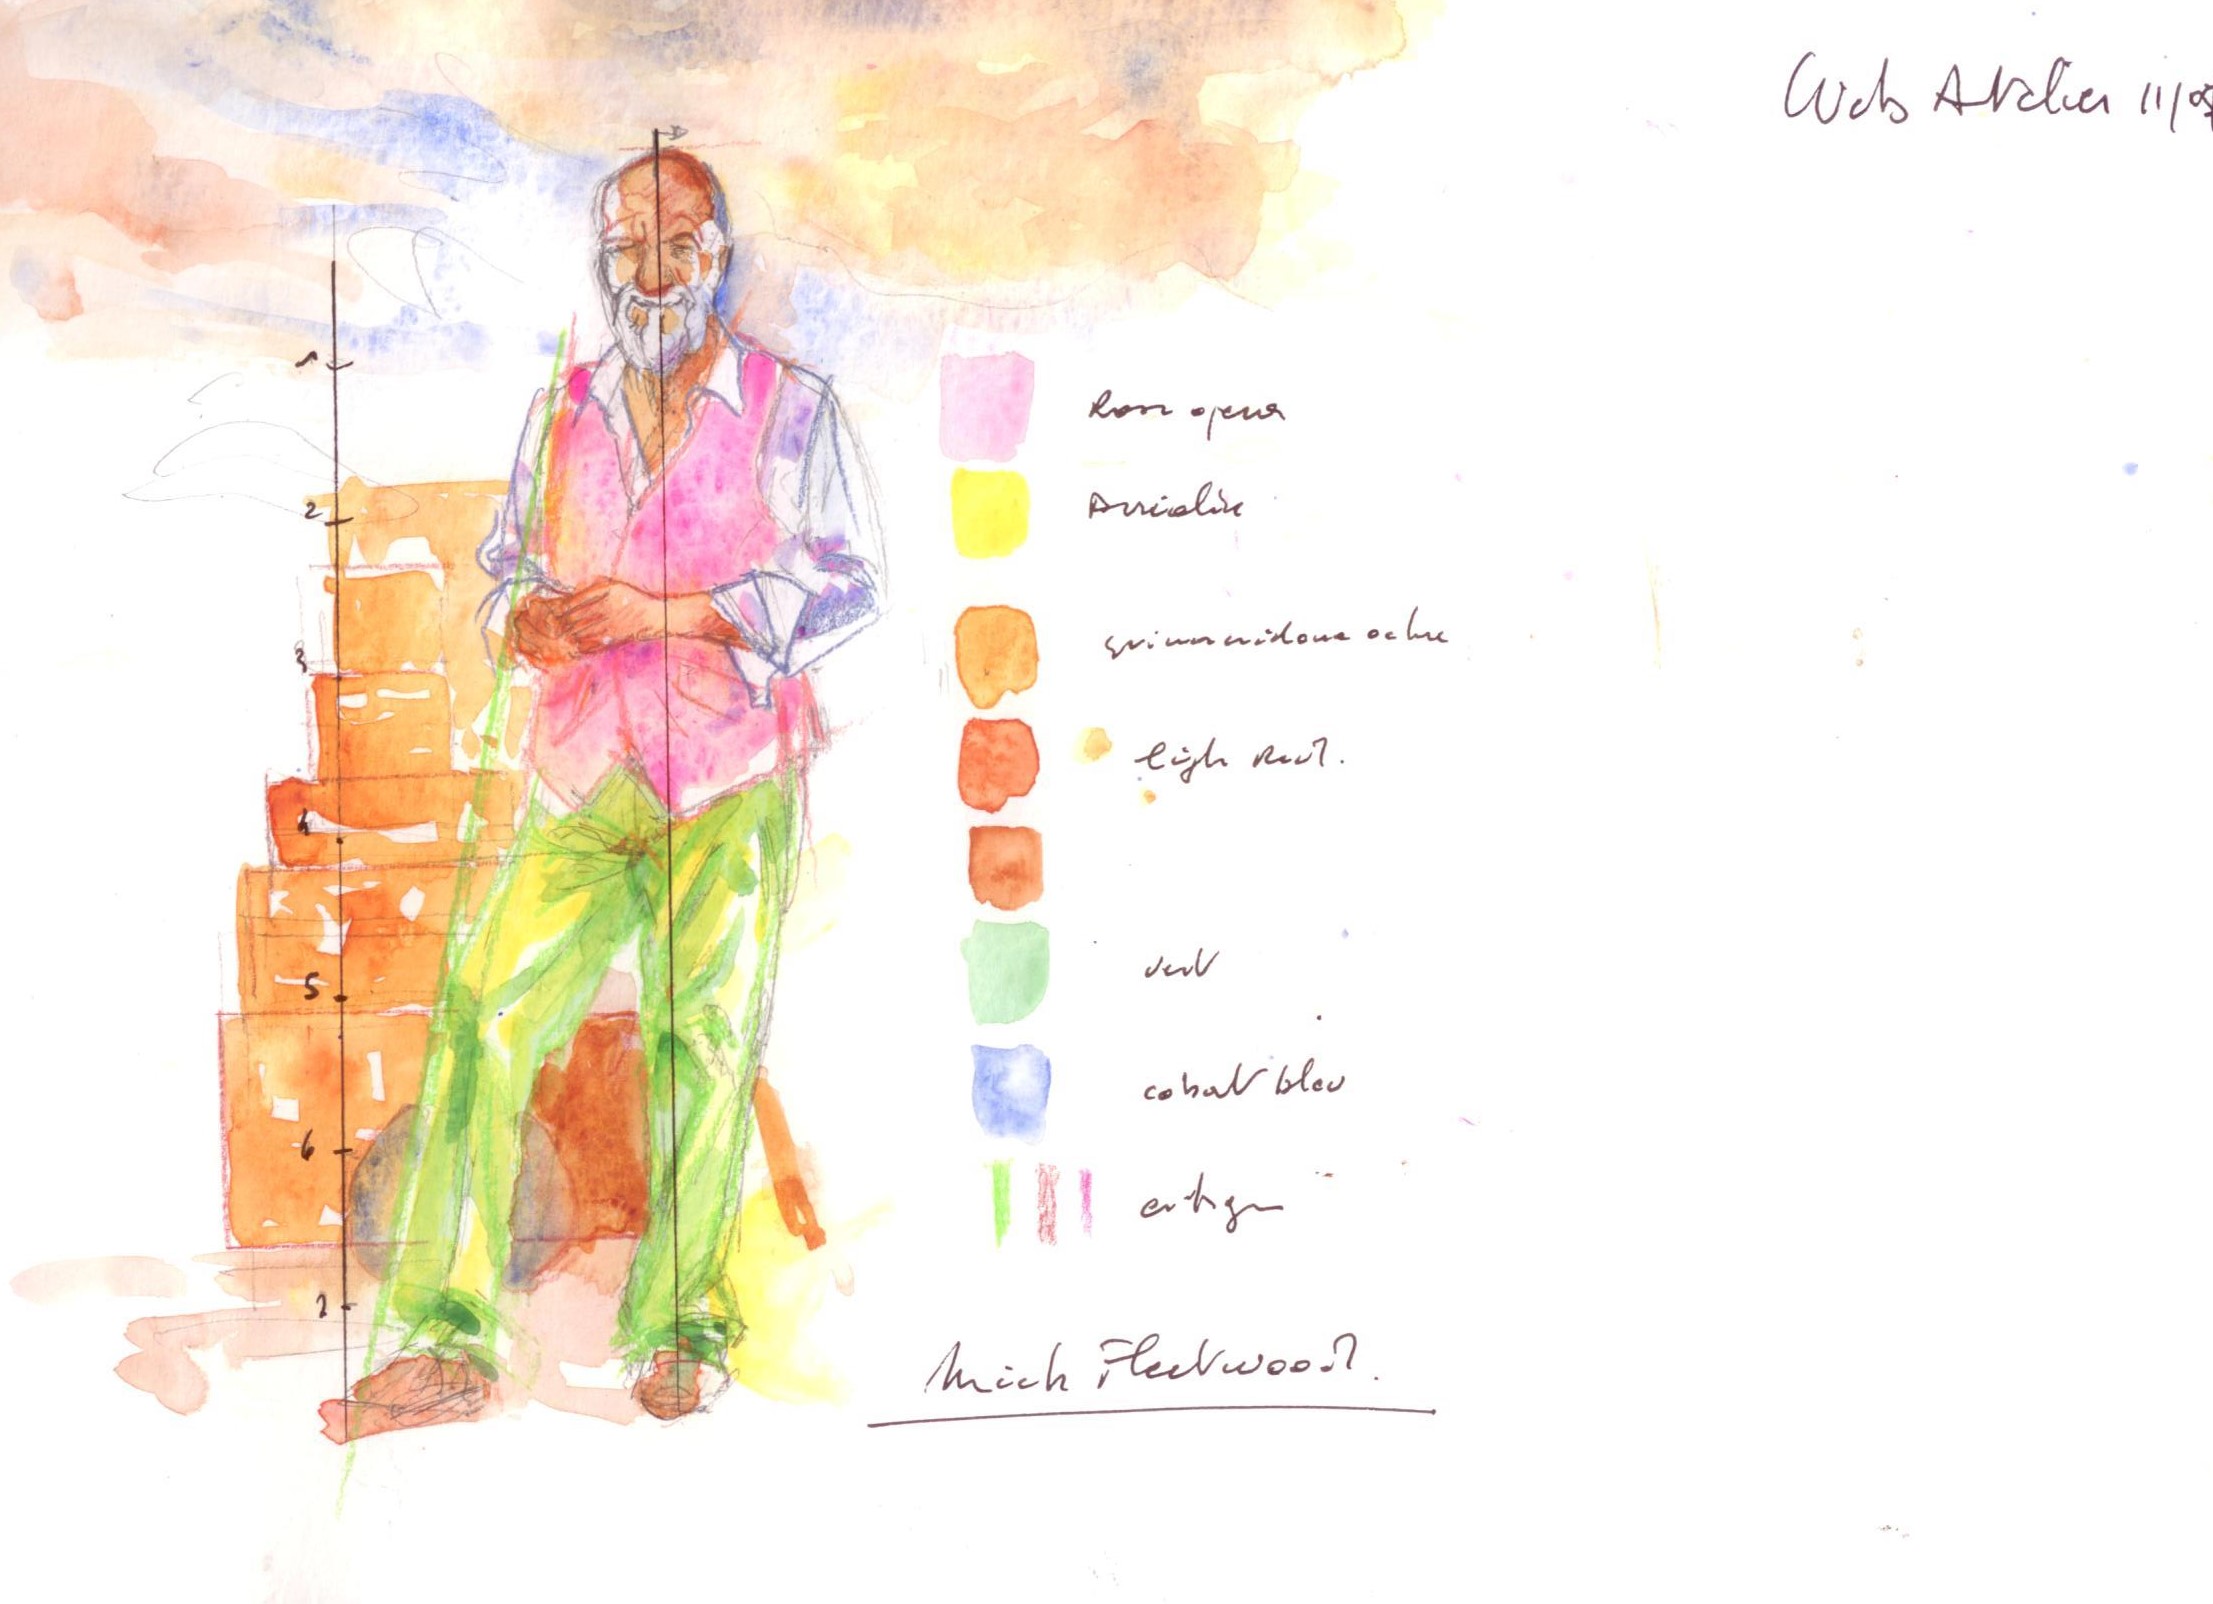 Web Atelier
1
2
3
4
5
6
7
Rose opera
quinacridone ochre
light Red.
vert
cobalt bleu
Mick Fleetwood.